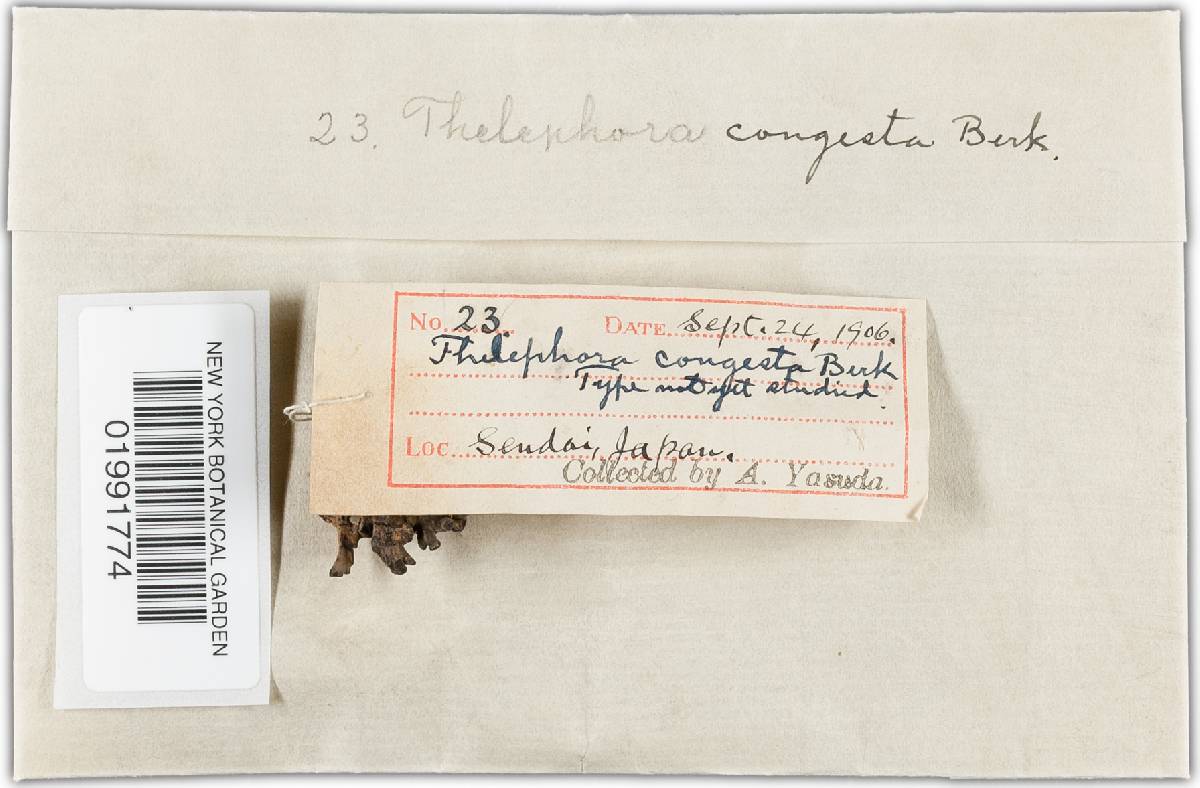 23. Thelephora congesta Berk.
No. 23. DATE Sept. 24, 1906.
Thelephora congesta Berk
Type not yet studied.
Loc. Sendai, Japan.
Collected by A. Yasuda.
NEW YORK BOTANICAL GARDEN
01991774